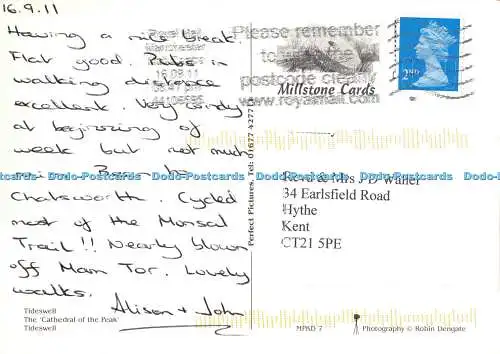 16.9.11
Having a nice break.
Flat good. Pubs in
walking distance
excellent. Very windy
at beginning of
week but not much
rain. Been to
Chatsworth. Cycled
most of the Monsal
Trail!! Nearly blown
off Mam Tor. Lovely
walks.
Alison + John
Tideswell
The 'Cathedral of the Peak'
Tideswell
Royal Mail
Manchester
16.09.11
Please remember
to
postcode clearly
www.royalmail.com
Millstone Cards
2ND
Perfect Pictures. Tel: 01677 4277
Dodo-Postcards Dodo-Postcards Dodo-Postcards Dodo-Postcards Dodo-Postcards
Revd & Mrs J D Waller
34 Earlsfield Road
Hythe
Kent
CT21 5PE
MPKD 7
Photography © Robin Dengate